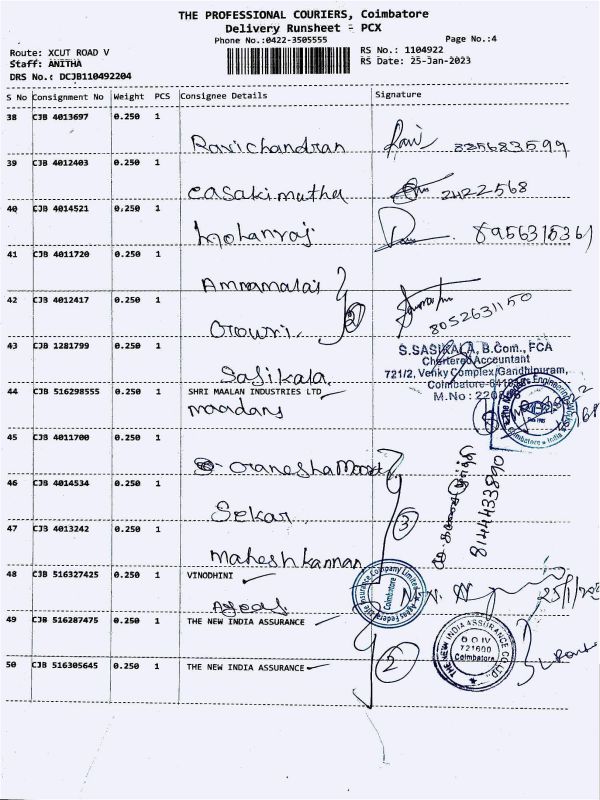 THE PROFESSIONAL COURIERS, Coimbatore
Delivery Runsheet - PCX
Phone No.:0422-3505555
Page No.:4
Route: XCUT ROAD V
Staff: ANITHA
DRS No.: DCJB110492204
RS No.: 1104922
RS Date: 25-Jan-2023
S No Consignment No Weight PCS Consignee Details Signature
38 CJB 4013697 0.250 1
Ravichandran
39 CJB 4012403 0.250 1
Easakimuthu 2422568
40 CJB 4014521 0.250 1
Mohanraj
41 CJB 4011720 0.250 1
Annamalai
42 CJB 4012417 0.250 1
Gowri 2 8052631150
43 CJB 1281799 0.250 1
Sasikala
S.SASIKALA, B.Com., FCA
Chartered Accountant
721/2, Venky Complex, Gandhipuram,
Coimbatore
M.No:
44 CJB 516298555 0.250 1 SHRI MAALAN INDUSTRIES LTD
45 CJB 4011700 0.250 1
46 CJB 4014534 0.250 1
Sekar 3
8144433890
47 CJB 4013242 0.250 1
Maheshkannan
48 CJB 516327425 0.250 1 VINODHINI
Ageas Federal Life Insurance Company Limited
Coimbatore
49 CJB 516287475 0.250 1 THE NEW INDIA ASSURANCE
50 CJB 516305645 0.250 1 THE NEW INDIA ASSURANCE
2
THE NEW INDIA ASSURANCE CO LTD
721600
Coimbatore